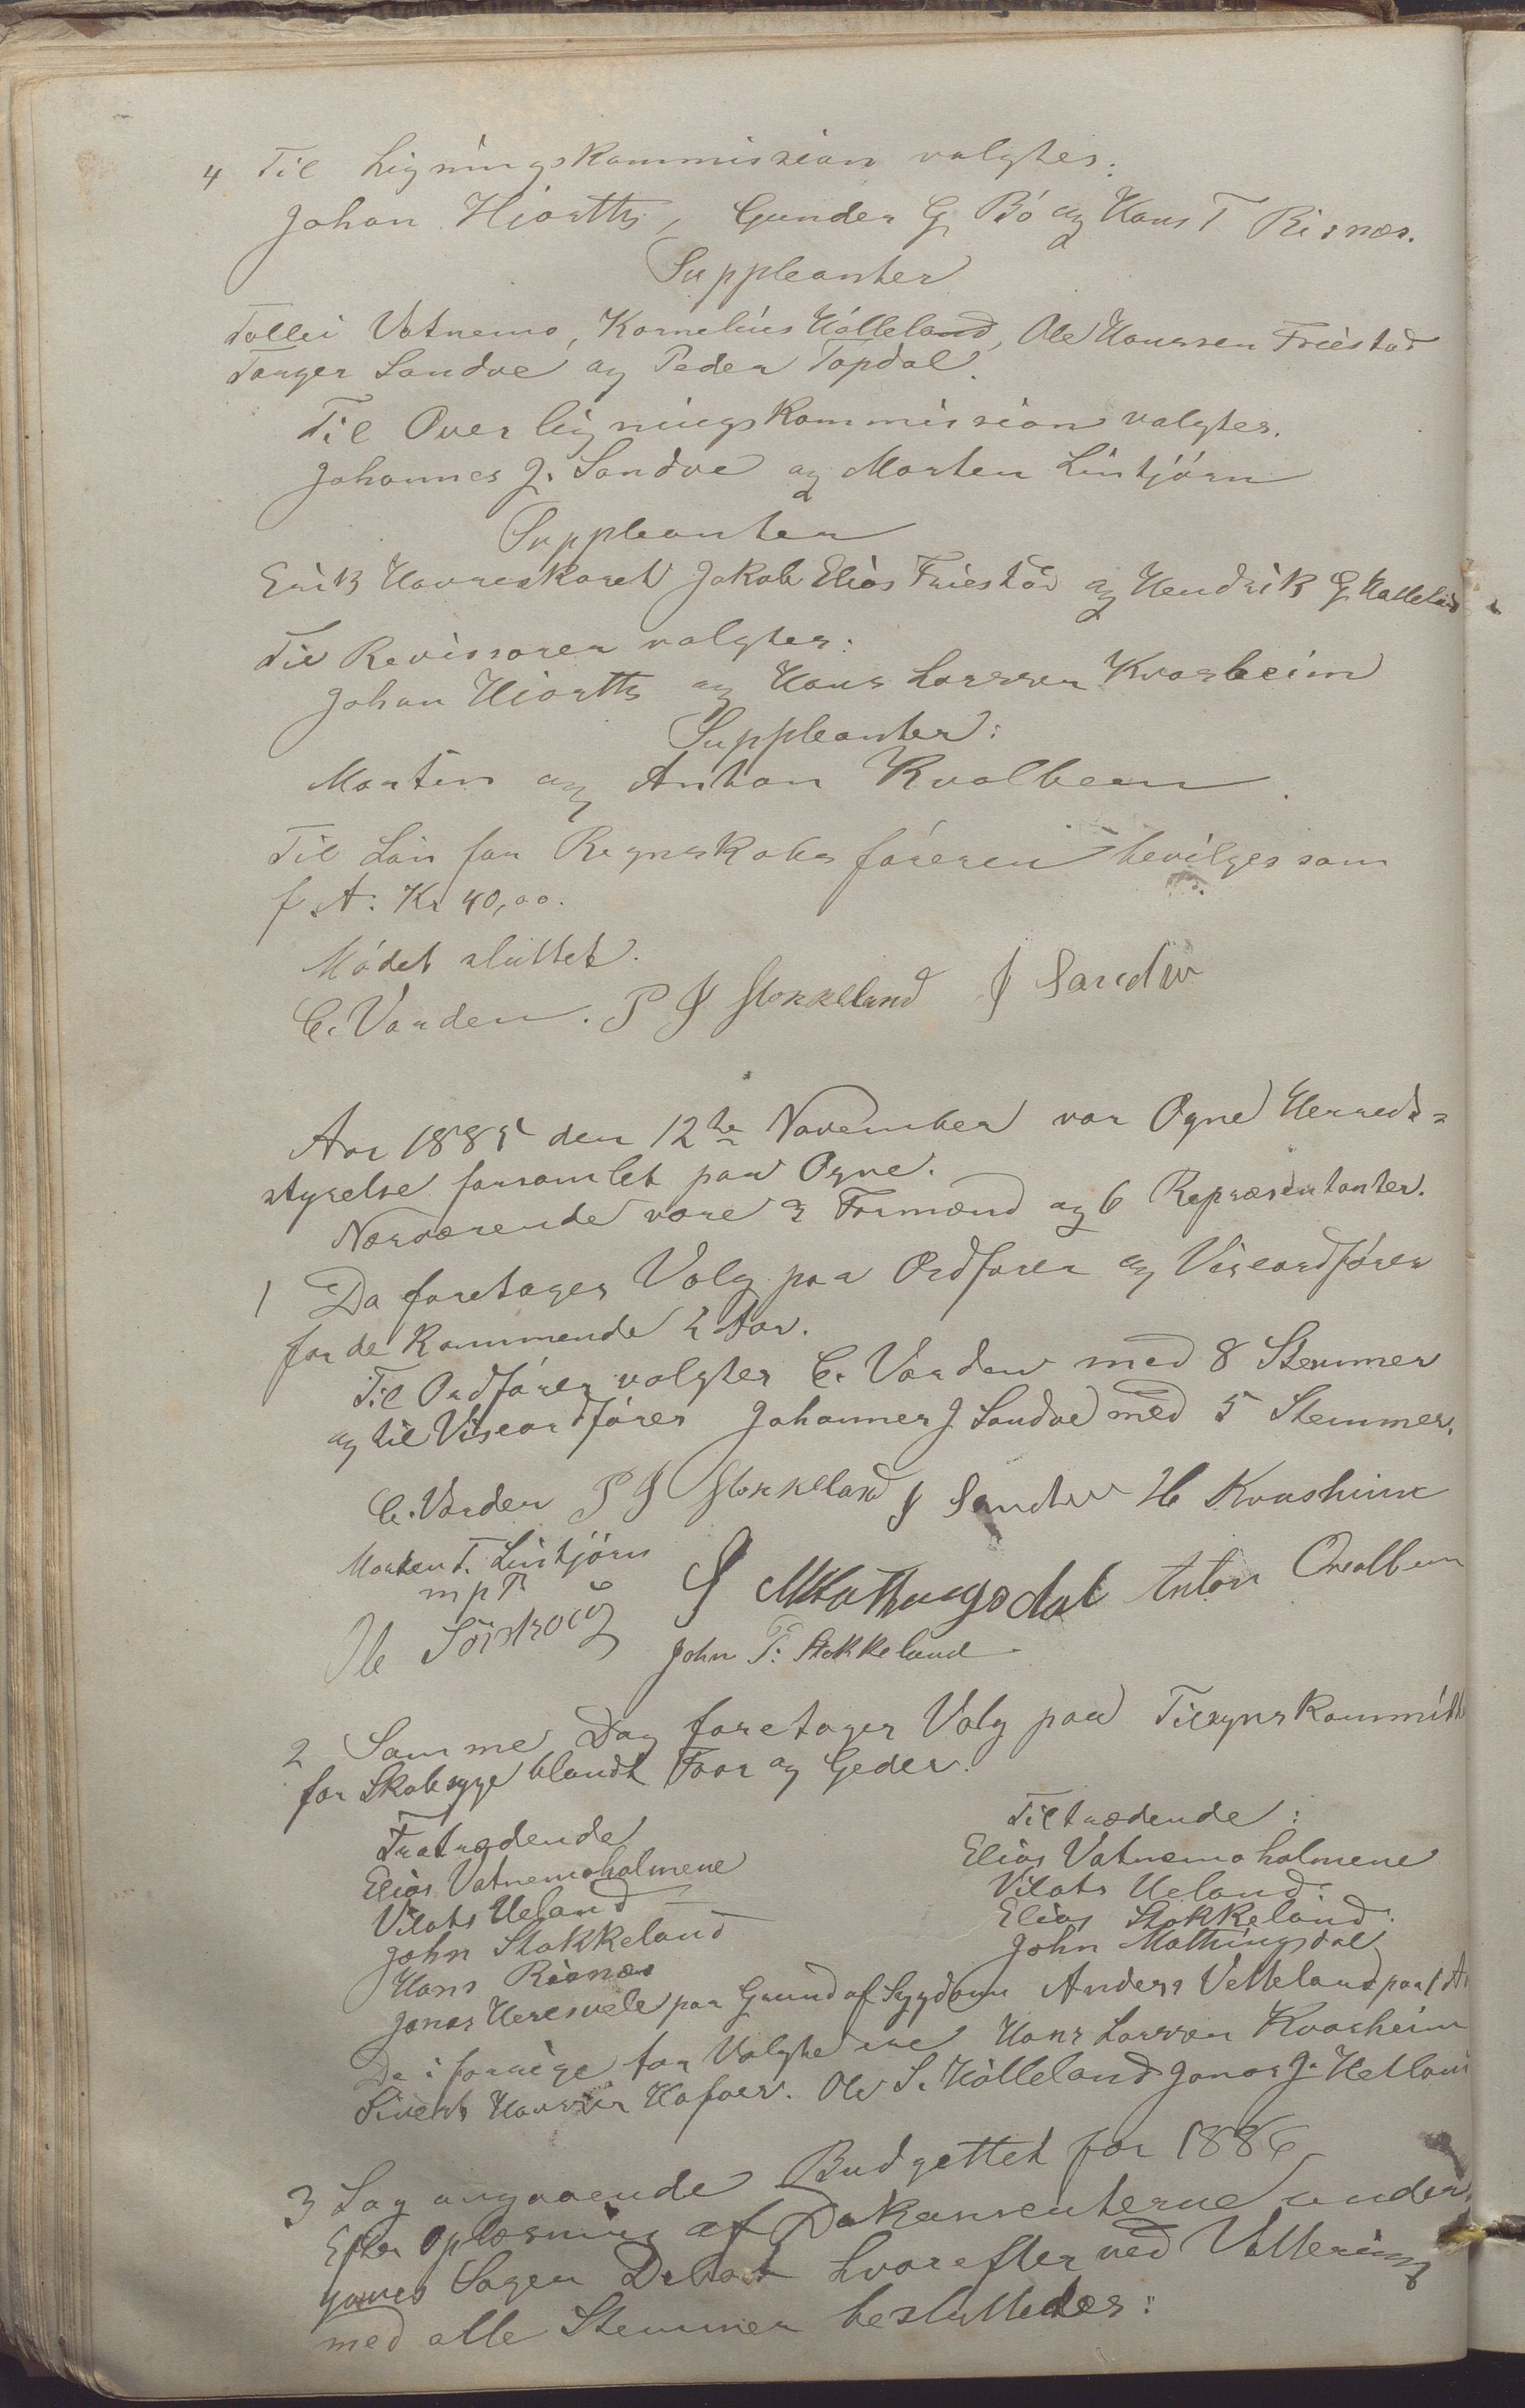 4 Til Ligningskommission valgtes:
Johan Hiorth, Gunder G. Bö og Hans T. Risnæs.
Suppleanter
Tollei Vatnemo, Kornelius Hölleland, Ole Hanssen Friestad
Torger Sandve og Peder Topdal.
Til Overligningskommission valgtes.
Johannes J. Sandve og Morten Lintjörn
Suppleanter
Erik Havreskaret Jakob Elias Friestad og Hendrik G
Til Revissorer valgtes:
Johan Hiorth og Hans Larssen Kvasheim
Suppleanter:
Martin og Anton Kvalbein.
Til Lön for Regnskabsföreren bevilges som
f. A. Kr 40,00.
Mödet sluttet.
C. Varden. P J Stokkeland J Sandve
Aar 1885 den 12te November var Ogne Herreds=
styrelse forsamlet paa Ogne.
Nærværende vare 3 Formænd og 6 Repræsentanter.
1 Da foretages Valg paa Ordfører og Viseordfører
for de kommende 2 Aar.
Til Ordfører valgtes C. Varden med 8 Stemmer
og til Viseordfører Johannes J Sandve med 5 Stemmer.
C. Varden P J Stokkeland J Sandve H Kvasheim
Morten T. Lintjörn
mpP J Mattingsdal Anton Qvalbein
Ole
John T. Stokkeland
2 Samme Dag foretages Valg paa Tilsynskommitt
for Skabsyge blandt Faar og Geder.
Fratrædende
Tiltrædende:
Elias Vatnemoholmene
Elias Vatnemoholmene
Vilats Ueland
Vilats Ueland
John Stokkeland
Elias Stokkeland
Hans Risnæs
John Mattingsdal
Jonas Heresvele paa Grund af Sygdom Anders Vetteland paa 1 A
De i forrige Aar Valgte ere Hans Larssen Kvasheim
Sivert Hanssen Hafver. Ole S. Hölleland Jonas J. Hetlan
3 Sag angaaende Budgettet for 1886
Efter Oplæsning af Dokumenterne under
gaves Sagen Debat hvorefter ved Vottering
med alle Stemmer besluttedes: